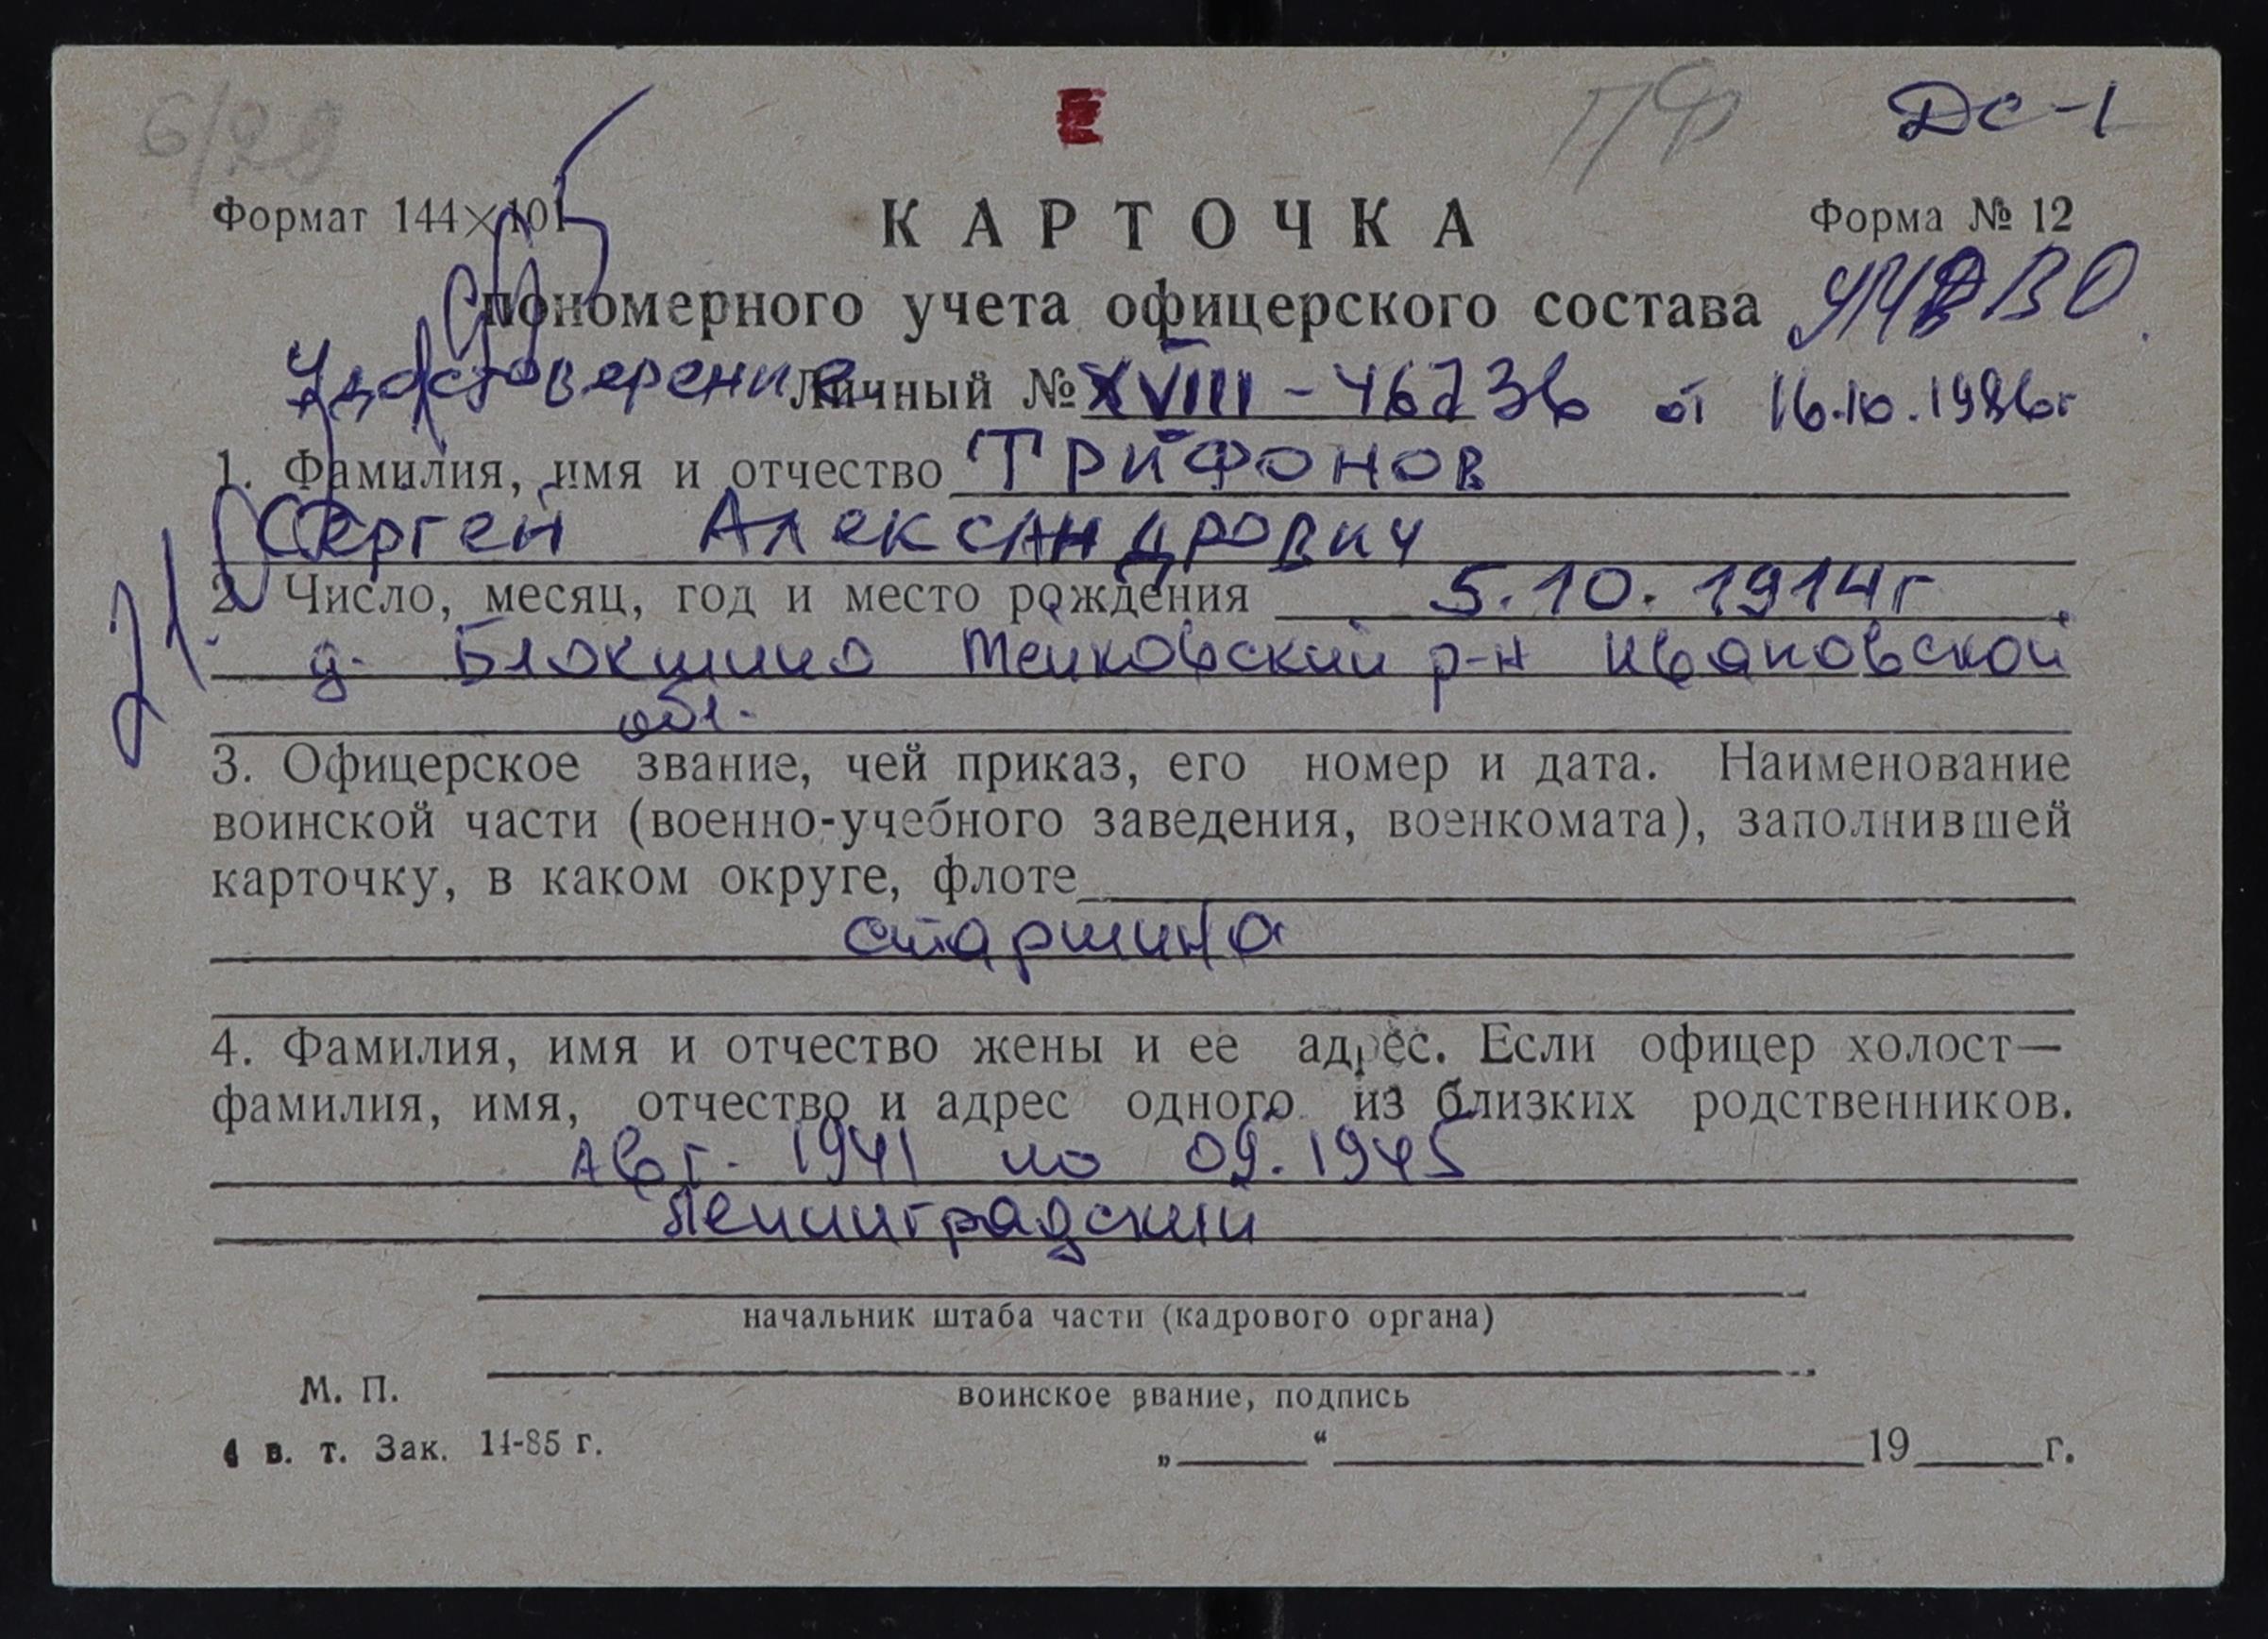 ПФ ДС-1
Формат 144×101 КАРТОЧКА Форма № 12
пономерного учета офицерского состава
Удостоверение Личный № XVIII - 467336 от 16.10.1986г
1. Фамилия, имя и отчество Трифонов
Сергей Александрович
2. Число, месяц, год и место рождения 5.10.1914г.
д. Блокшино Тейковский р-н Ивановской
обл.
3. Офицерское звание, чей приказ, его номер и дата. Наименование
воинской части (военно-учебного заведения, военкомата), заполнившей
карточку, в каком округе, флоте
старшина
4. Фамилия, имя и отчество жены и ее адрес. Если офицер холост—
фамилия, имя, отчество и адрес одного из близких родственников.
Авг. 1941 по 09.1945
Ленинградский
начальник штаба части (кадрового органа)
М. П.
воинское звание, подпись
4 в. т. Зак. 14-85 г. „ “ 19 г.